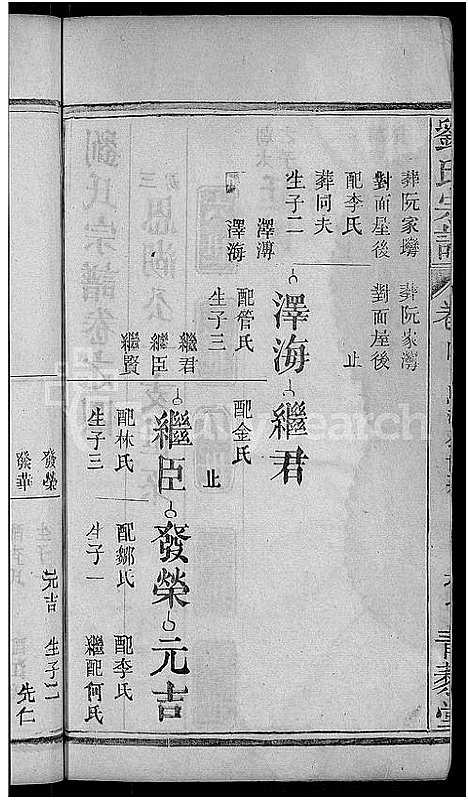 劉氏宗譜
卷
青藜堂
葬阮家灣
對面屋後
葬阮家灣
對面屋後
止
配李氏
葬同夫
生子二
澤溥
澤海
澤海
繼君
配管氏
生子三
繼君
繼臣
繼賢
配金氏
止
繼臣
發榮
元吉
配林氏
生子三
配鄒氏
生子一
配李氏
繼配何氏
發榮
發華
元吉
生子二
先仁